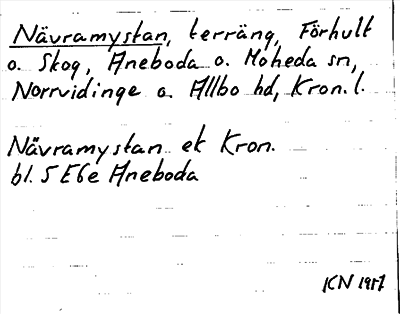 Nävramystan, terräng, Förhult
o. Skog, Aneboda o. Moheda sn,
Norrvidinge o. Allbo hd, Kron. l.
Nävramystan ek Kron.
bl. 5 E6e Aneboda
KN 1987